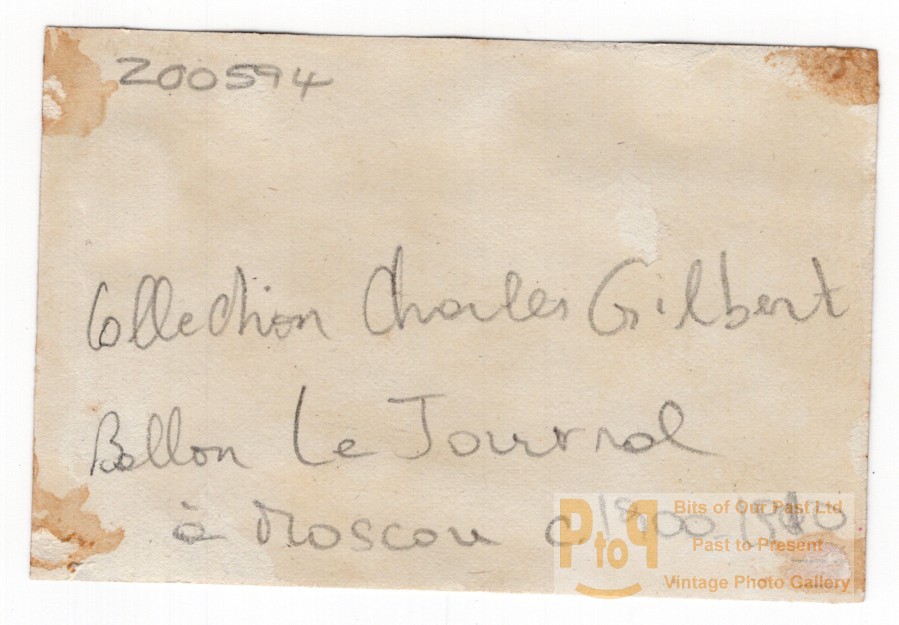 200594
Collection Charles Gilbert
Ballon Le Journal
à Moscou c 1900-1910
PtoP
Bits of Our Past Ltd
Past to Present
Vintage Photo Gallery